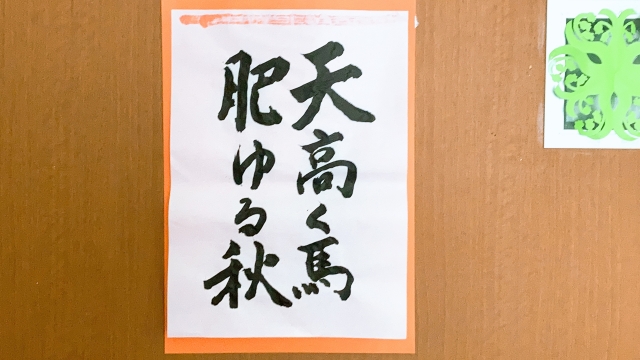 天高く馬
肥ゆる秋